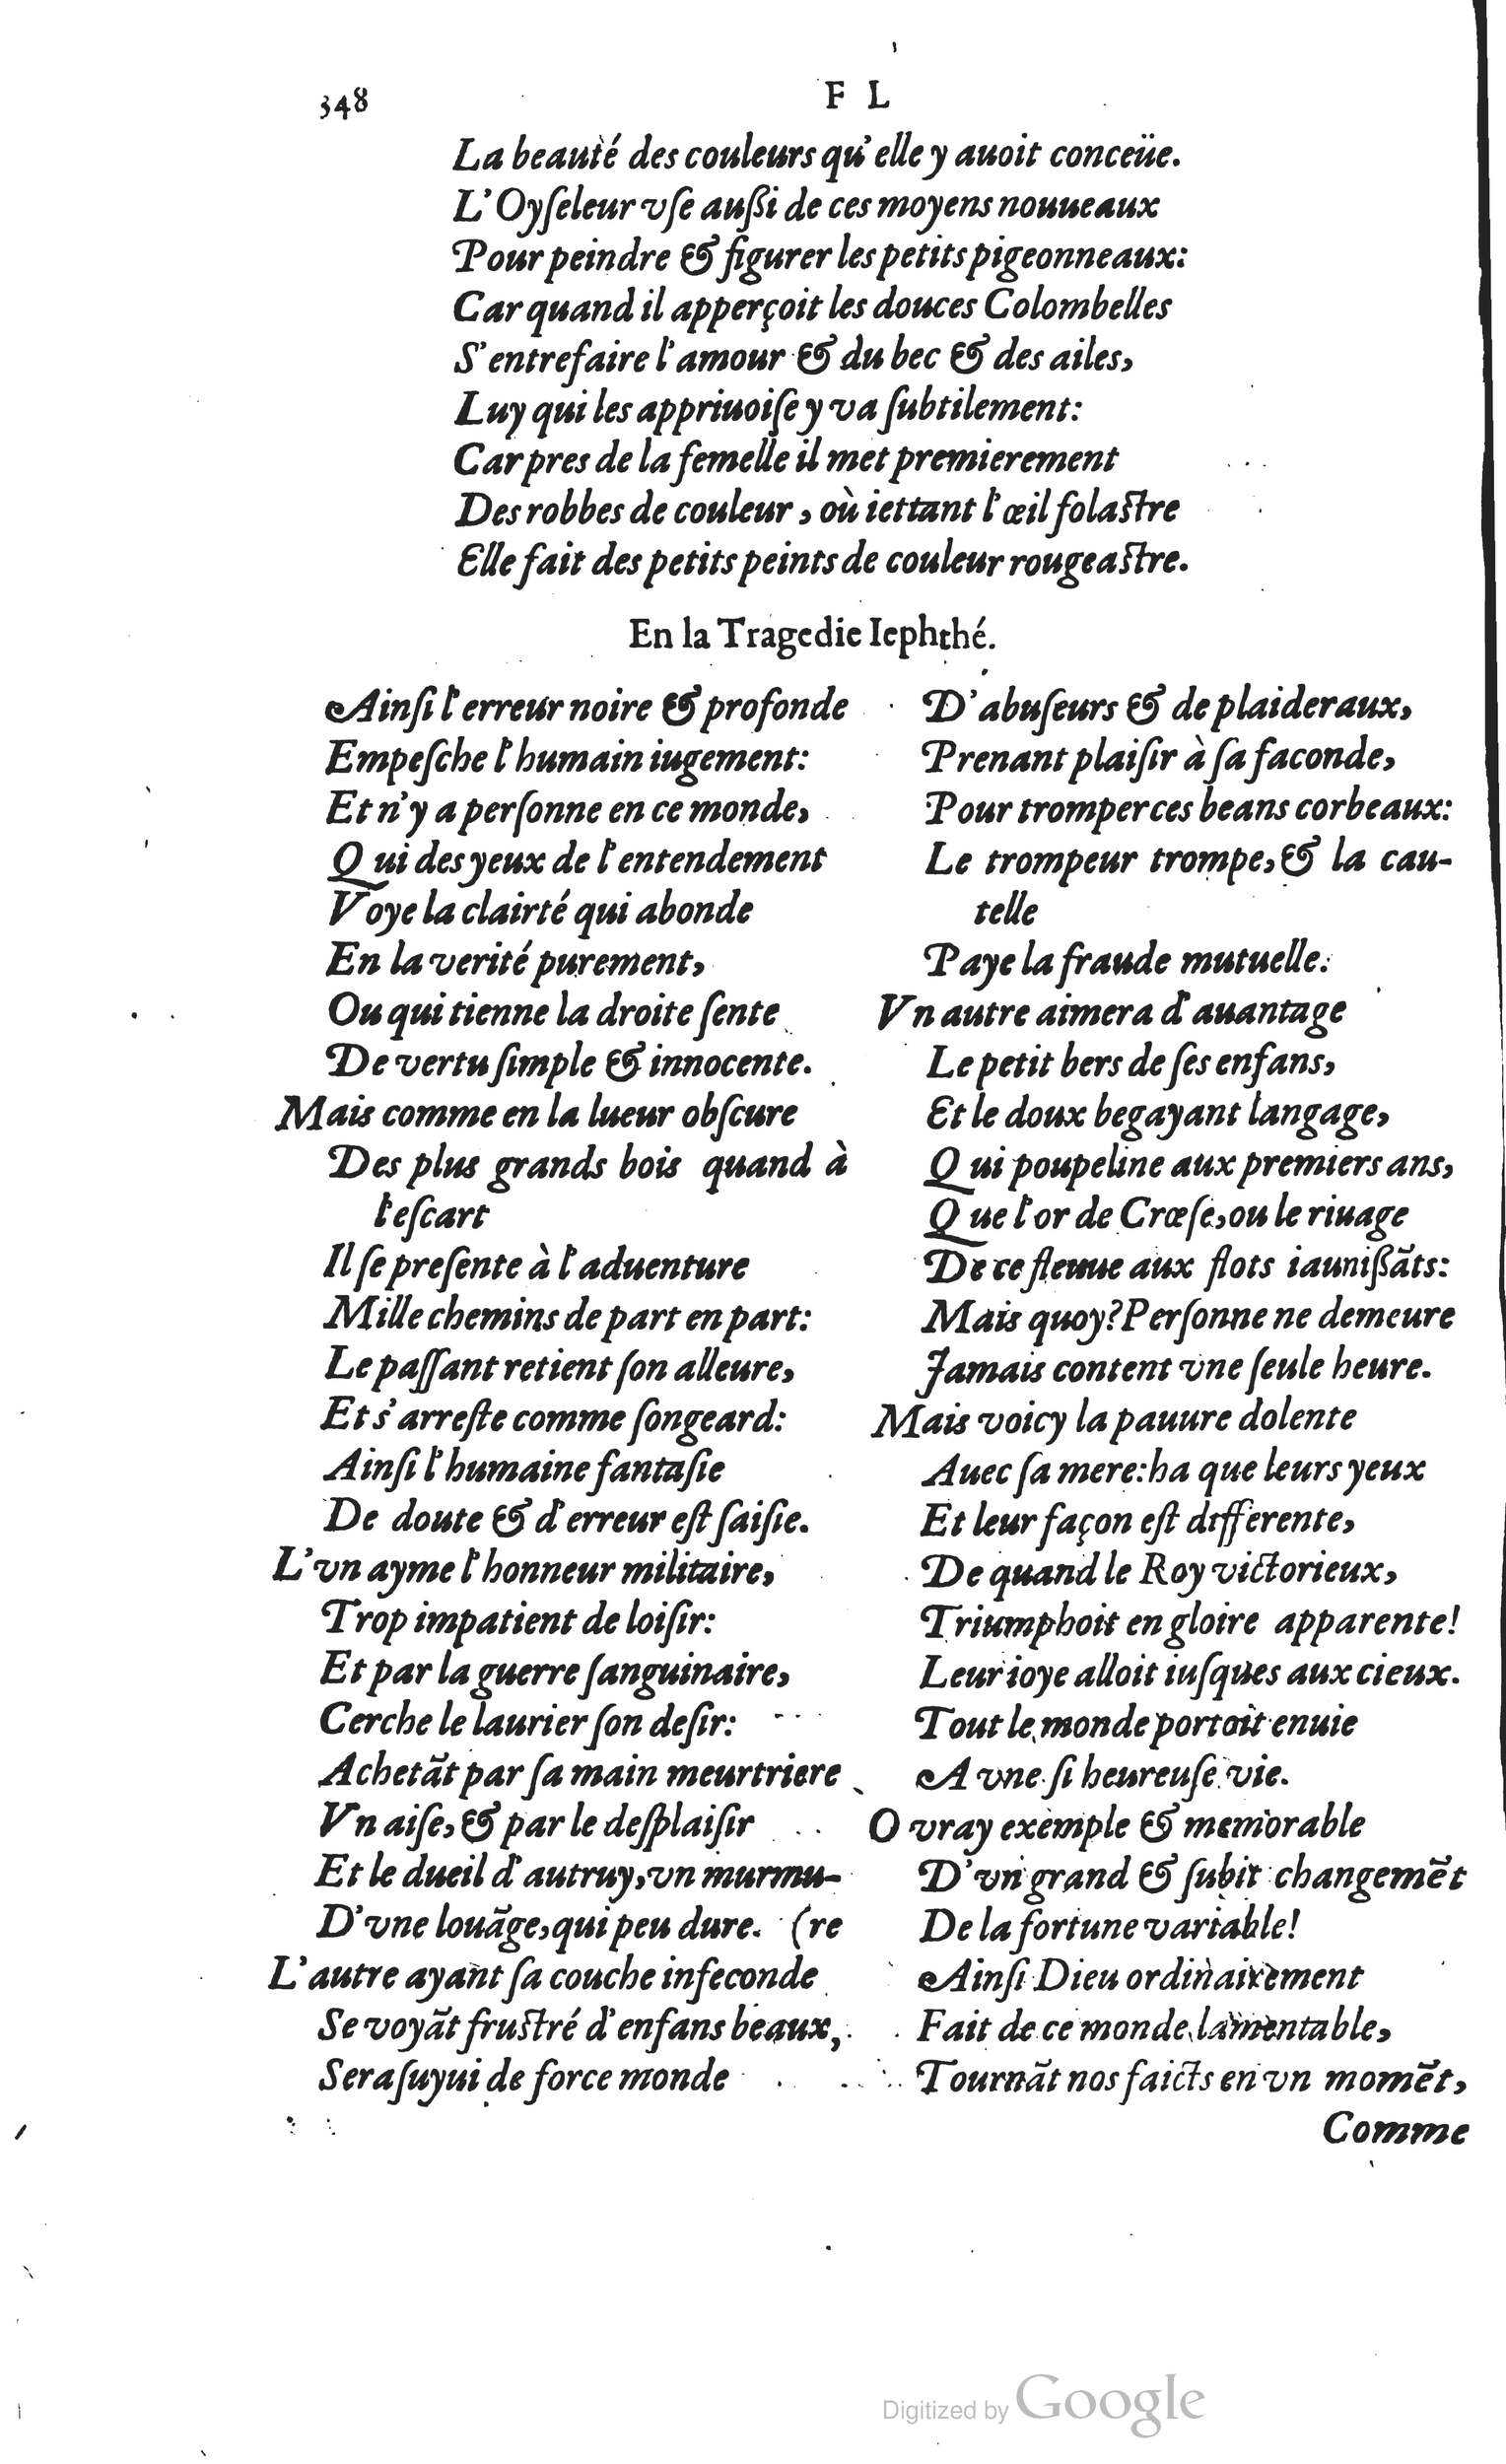 348
F L
La beauté des couleurs qu'elle y auoit conceüe.
L'Oyſeleur vſe außi de ces moyens nouueaux
Pour peindre & figurer les petits pigeonneaux:
Car quand il apperçoit les douces Colombelles
S'entrefaire l'amour & du bec & des ailes,
Luy qui les appriuoiſe y va ſubtilement:
Car pres de la femelle il met premierement
Des robbes de couleur, où iettant l'œil folaſtre
Elle fait des petits peints de couleur rougeaſtre.
En la Tragedie Iephthé.
Ainſi l'erreur noire & profonde
Empeſche l'humain iugement:
Et n'y a perſonne en ce monde,
Qui des yeux de l'entendement
Voye la clairté qui abonde
En la verité purement,
Ou qui tienne la droite ſente
De vertu ſimple & innocente.
Mais comme en la lueur obſcure
Des plus grands bois quand à
l'eſcart
Il ſe preſente à l'aduenture
Mille chemins de part en part:
Le paſſant retient ſon alleure,
Et s'arreſte comme ſongeard:
Ainſi l'humaine fantaſie
De doute & d'erreur eſt ſaiſie.
L'vn ayme l'honneur militaire,
Trop impatient de loiſir:
Et par la guerre ſanguinaire,
Cerche le laurier ſon deſir:
Achetãt par ſa main meurtriere
Vn aiſe, & par le deſplaiſir
Et le dueil d'autruy, vn murmu-
D'vne louãge, qui peu dure. (re
L'autre ayant ſa couche infeconde
Se voyãt fruſtré d'enfans beaux,
Sera ſuyui de force monde
D'abuſeurs & de plaideraux,
Prenant plaiſir à ſa faconde,
Pour tromper ces beans corbeaux:
Le trompeur trompe, & la cau-
telle
Paye la fraude mutuelle.
Vn autre aimera d'auantage
Le petit bers de ſes enfans,
Et le doux begayant langage,
Qui poupeline aux premiers ans,
Que l'or de Crœſe, ou le riuage
De ce fleuue aux flots iaunißãts:
Mais quoy? Perſonne ne demeure
Jamais content vne ſeule heure.
Mais voicy la pauure dolente
Auec ſa mere: ha que leurs yeux
Et leur façon eſt differente,
De quand le Roy victorieux,
Triumphoit en gloire apparente!
Leur ioye alloit iuſques aux cieux.
Tout le monde portoit enuie
A vne ſi heureuſe vie.
O vray exemple & memorable
D'vn grand & ſubit changemẽt
De la fortune variable!
Ainſi Dieu ordinairement
Fait de ce monde lamentable,
Tournãt nos faicts en vn momẽt,
Comme
Digitized by Google